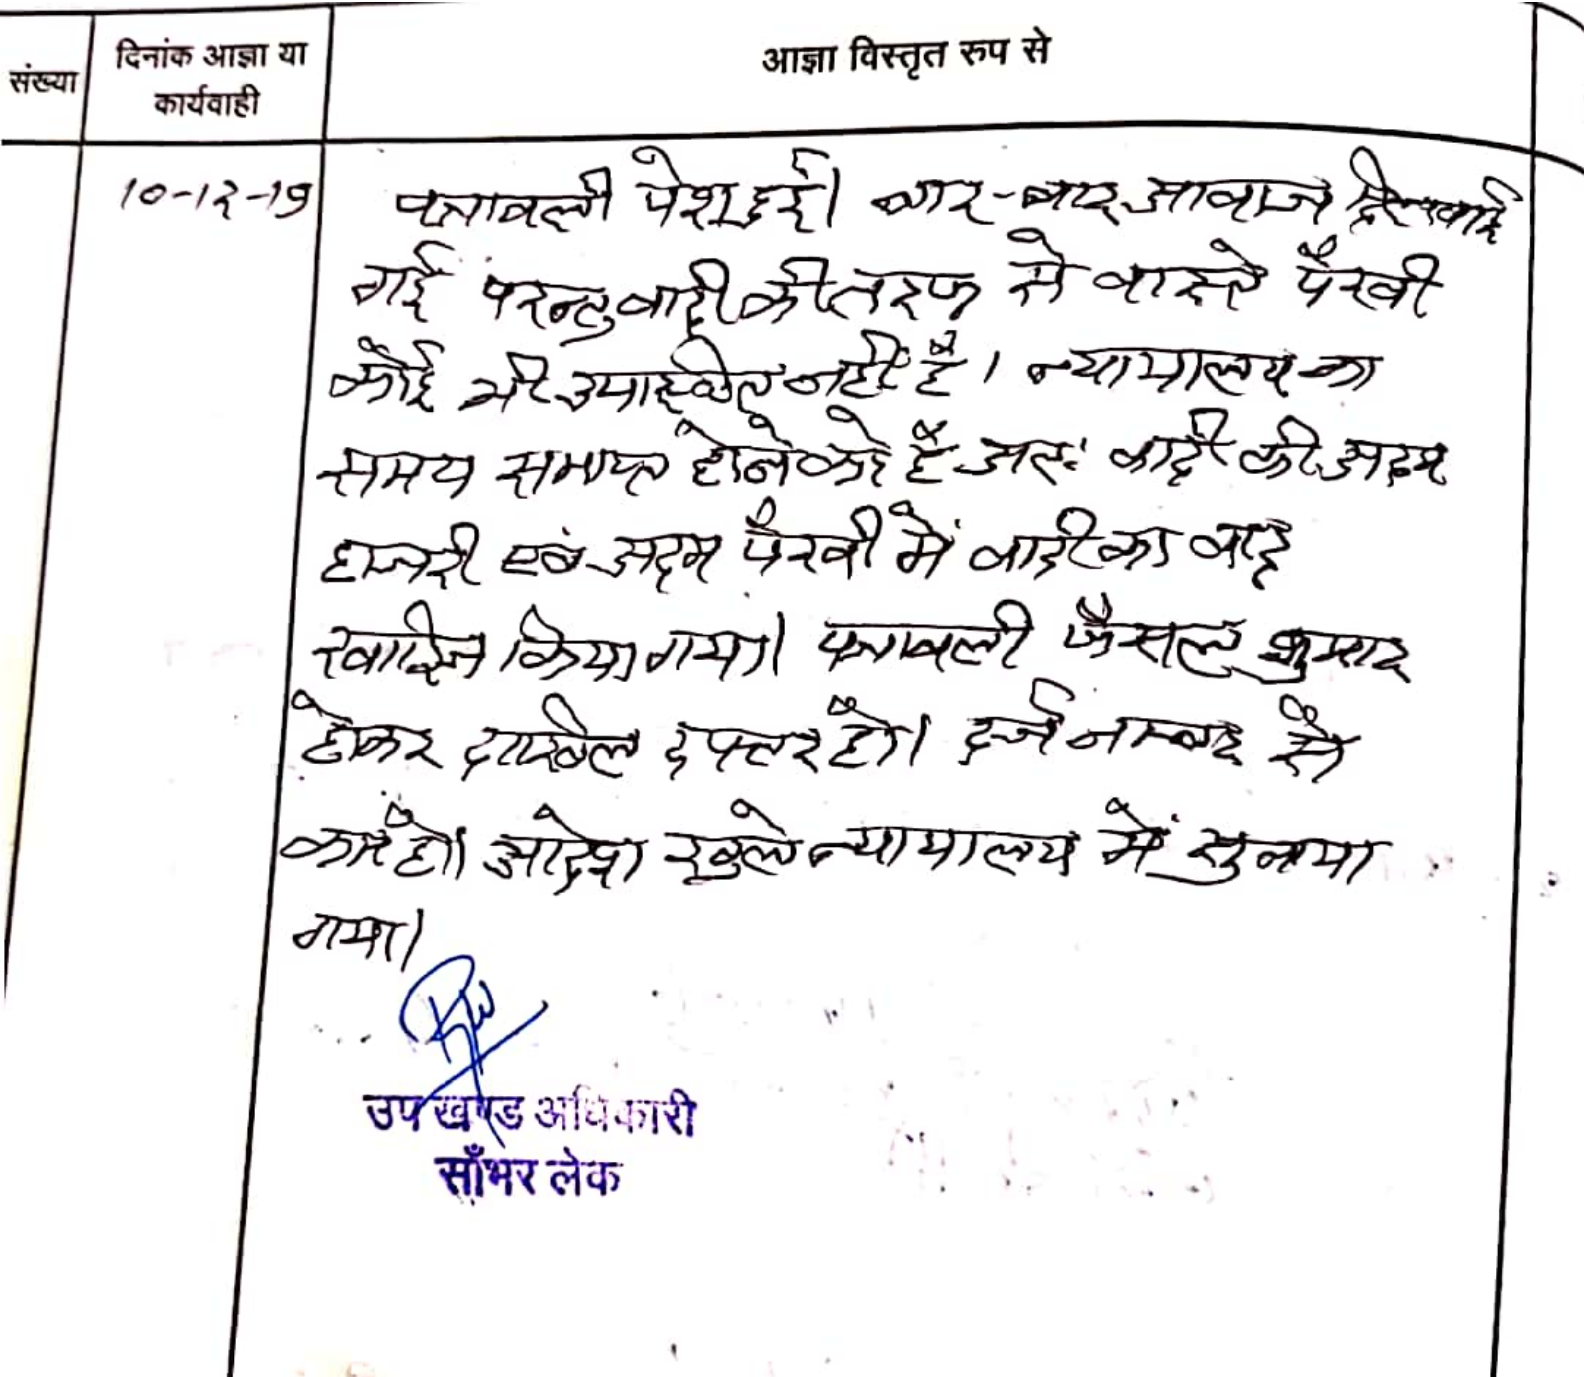 संख्या
दिनांक आज्ञा या
कार्यवाही
आज्ञा विस्तृत रुप से
10-12-19
पत्रावली पेश हुई। बार-बार आवाज दिलवाई
गई परन्तु वादी की तरफ से वास्ते पैरवी
कोई भी उपस्थित नहीं है। न्यायालय का
समय समाप्त होने को है अतः वादी की अदम
हाजरी एवं अदम पैरवी में वादी का वाद
खारिज किया गया। पत्रावली फैसल शुमार
होकर दाखिल दफ्तर हो। दर्ज नम्बर से
कम हो। आदेश खुले न्यायालय में सुनाया
गया।
उप खण्ड अधिकारी
साँभर लेक